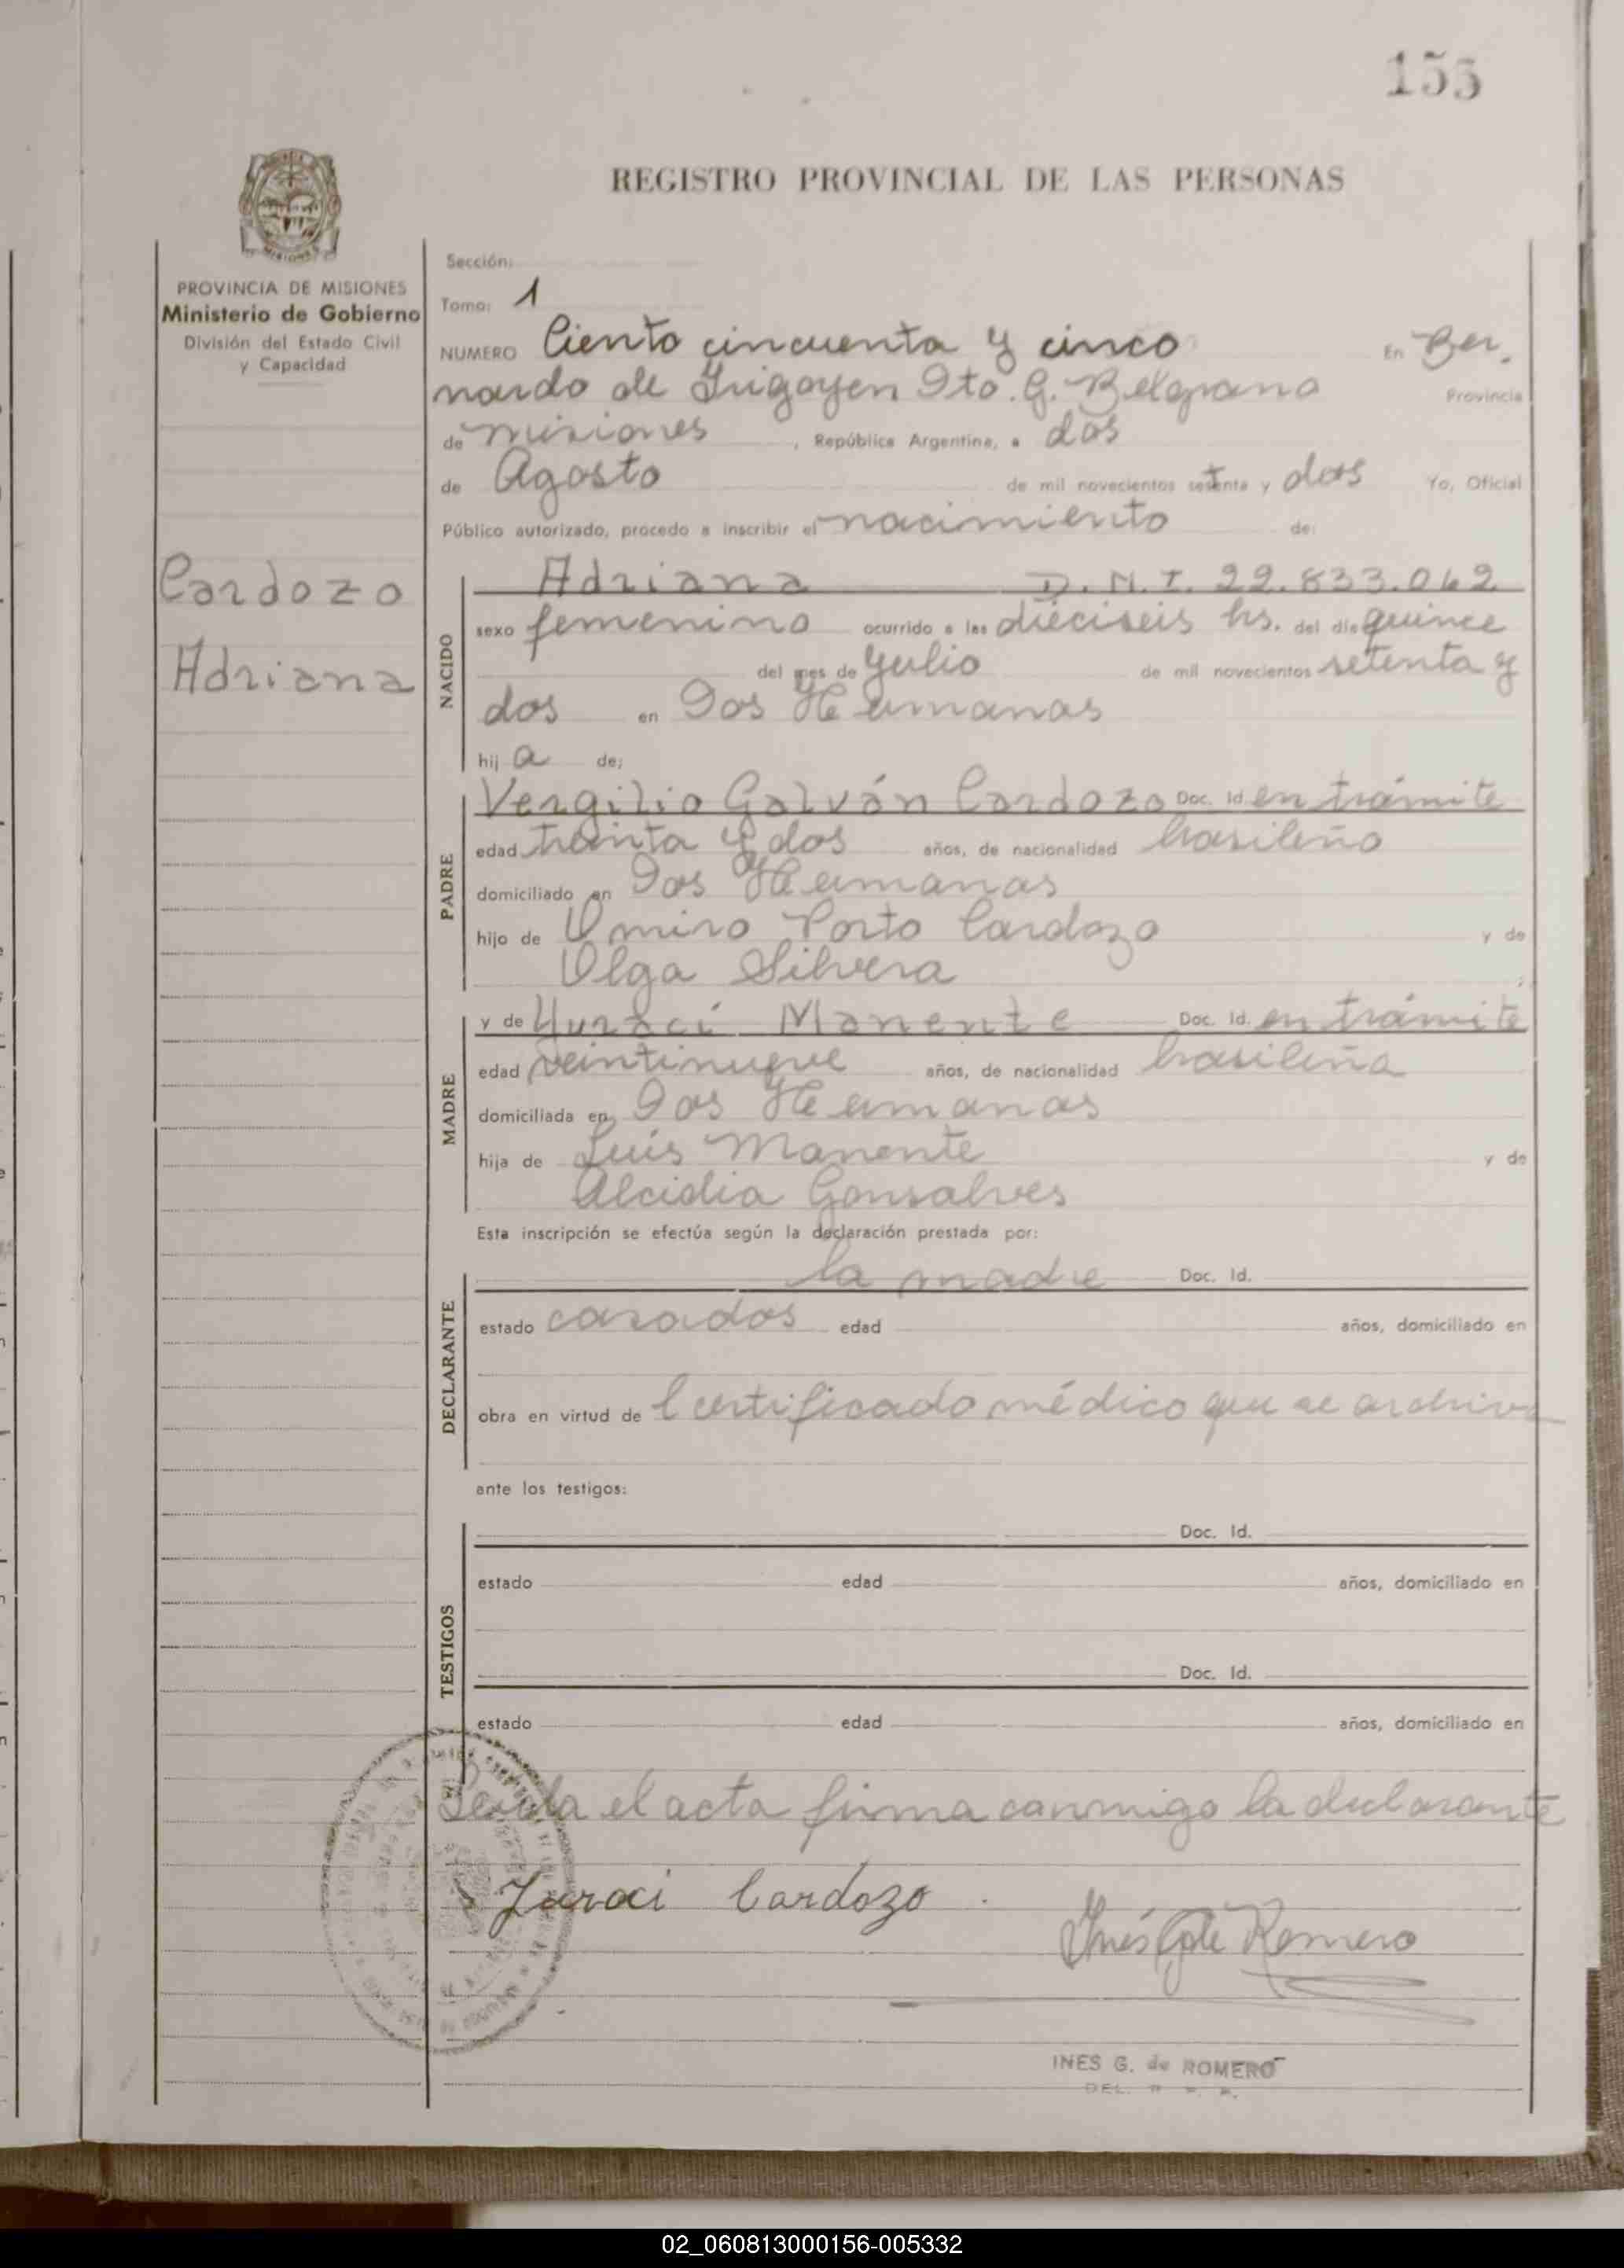 155
REGISTRO PROVINCIAL DE LAS PERSONAS
PROVINCIA DE MISIONES
Ministerio de Gobierno
División del Estado Civil
y Capacidad
Cardozo
Adriana
Sección:
Tomo: 1
NUMERO Ciento cincuenta y cinco En Ber.
nardo de Irigoyen Dto. G. Belgrano Provincia
de misiones, República Argentina, a dos
de Agosto de mil novecientos setenta y dos Yo, Oficial
Público autorizado, procedo a inscribir el nacimiento de:
NACIDO
Adriana D.N.I. 22.833.062
sexo femenino ocurrido a las dieciseis hs. del dia quince
del mes de Julio de mil novecientos setenta y
dos en Dos Hermanas
hij a de;
PADRE
Vergilio Galván Cardozo Doc. Id. en trámite
edad treinta y dos años, de nacionalidad brasileño
domiciliado en Dos Hermanas
hijo de Omiro Porto Cardozo y de
Olga Silvera
MADRE
y de Yuraci Manente Doc. Id. en trámite
edad veintinueve años, de nacionalidad brasileña
domiciliada en Dos Hermanas
hija de Luis Manente y de
Alcidia Gonsalves
Esta inscripción se efectúa según la declaración prestada por:
DECLARANTE
la madre Doc. Id.
estado casados edad años, domiciliado en
obra en virtud de Certificado médico que se archiva
ante los testigos:
TESTIGOS
Doc. Id.
estado edad años, domiciliado en
Doc. Id.
estado edad años, domiciliado en
Leida el acta firma conmigo la declarante
Juraci Cardozo
Inés G de Romero
INES G. de ROMERO
DEL.
02_060813000156-005332